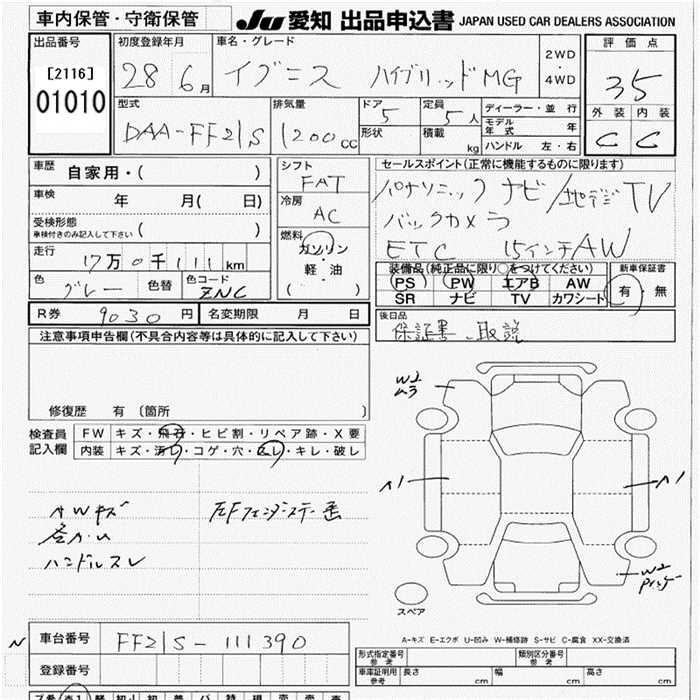 車内保管・守衛保管 JU 愛知 出品申込書 JAPAN USED CAR DEALERS ASSOCIATION
出品番号 [2116] 01010
初度登録年月 28 6月
車名・グレード イグニス ハイブリッドMG 2WD・4WD
評価点 35
外装 内装
C C
型式 DAA-FF21S
排気量 1200 CC
ドア 5
定員 5人
形状
積載 kg
ディーラー・並行
モデル年式 年
ハンドル 左・右
車歴 自家用・( )
車検 年 月( 日)
受検形態 車検付きのみ記入して下さい ( )
走行 17万0千111km
色 グレー 色替 色コード ZNC
シフト FAT
冷房 AC
燃料 ガソリン・軽・油 ( )
セールスポイント(正常に機能するものに限ります)
パナソニック ナビ/地デジTV
バックカメラ
ETC 15インチAW
装備品(純正品に限り○をつけてください)
PS PW エアB AW
SR ナビ TV カワシート
新車保証書 有・無
R券 9030円 名変期限 月 日
後日品 保証書、取説
注意事項申告欄(不具合内容等は具体的に記入して下さい)
修復歴 有 〔箇所 〕
検査員記入欄
FW キズ・飛石・ヒビ割・リペア跡・X要
内装 キズ・汚レ・コゲ・穴・スレ・キレ・破レ
AWキズ
ハンドルスレ
左Fフェンダーステー歪
W2 ムラ
A1
A1
W2
スペア
A-キズ E-エクボ U-凹み W-補修跡 S-サビ C-腐食 XX-交換済
N 車台番号 FF21S-111390
登録番号
形式指定番号 参考 類別区分番号 参考
車庫証明用 参考 長さ cm 幅 cm 高さ cm